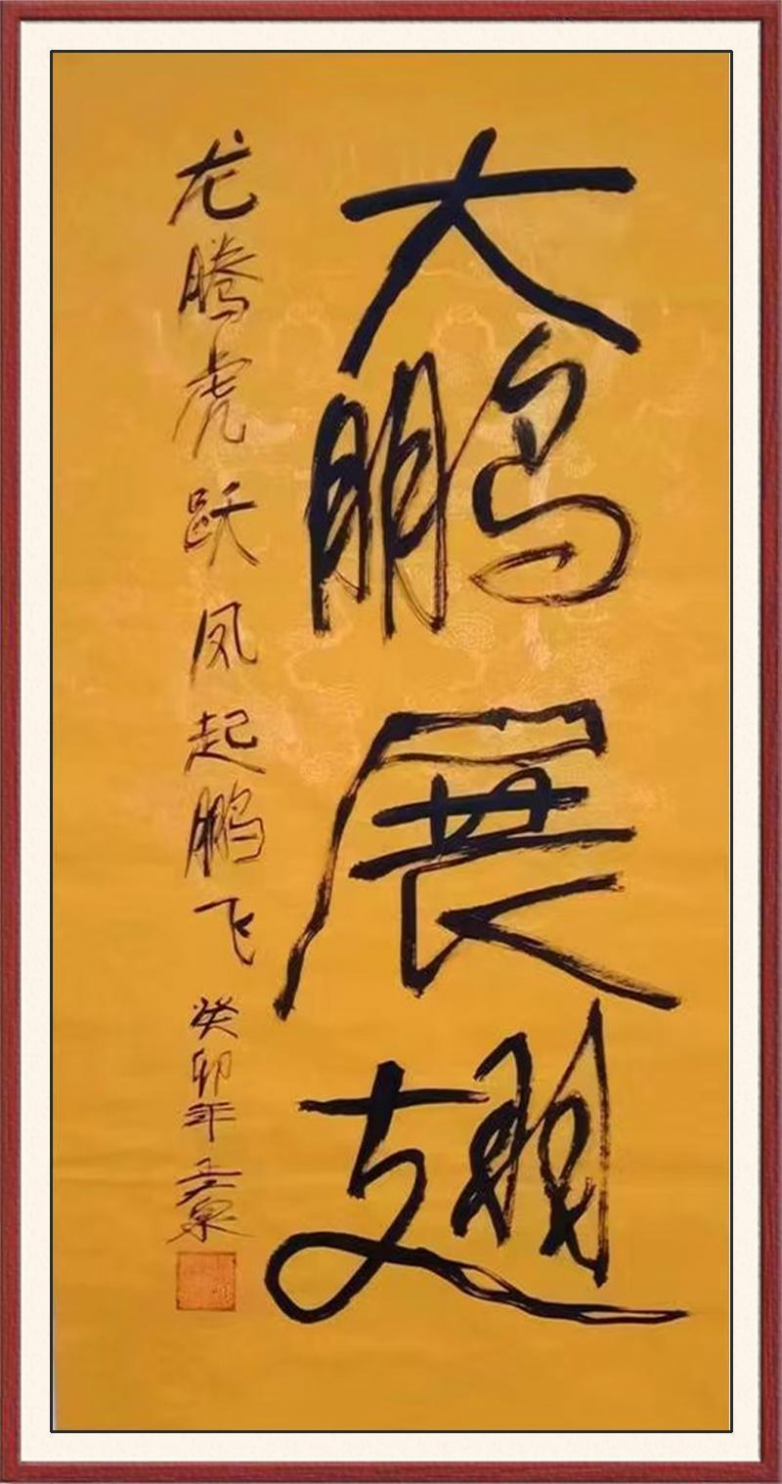 大鹏展翅
龙腾虎跃凤起鹏飞癸卯年